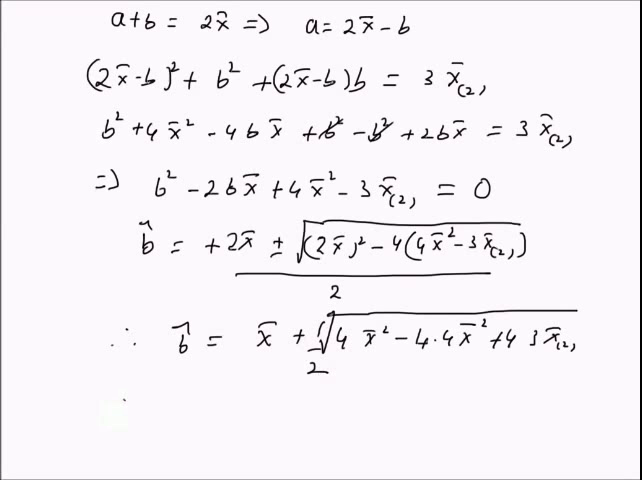 a+b = 2x̄ => a = 2x̄ - b
(2x̄-b)² + b² + (2x̄-b)b = 3 x̄₍₂₎
b² + 4x̄² - 4bx̄ + b² - b² + 2bx̄ = 3 x̄₍₂₎
=> b² - 2bx̄ + 4x̄² - 3x̄₍₂₎ = 0
b̂ = +2x̄ ± √((2x̄)² - 4(4x̄² - 3x̄₍₂₎))
2
∴ b̂ = x̄ + 1/2 √(4 x̄² - 4·4x̄² + 4 3x̄₍₂₎